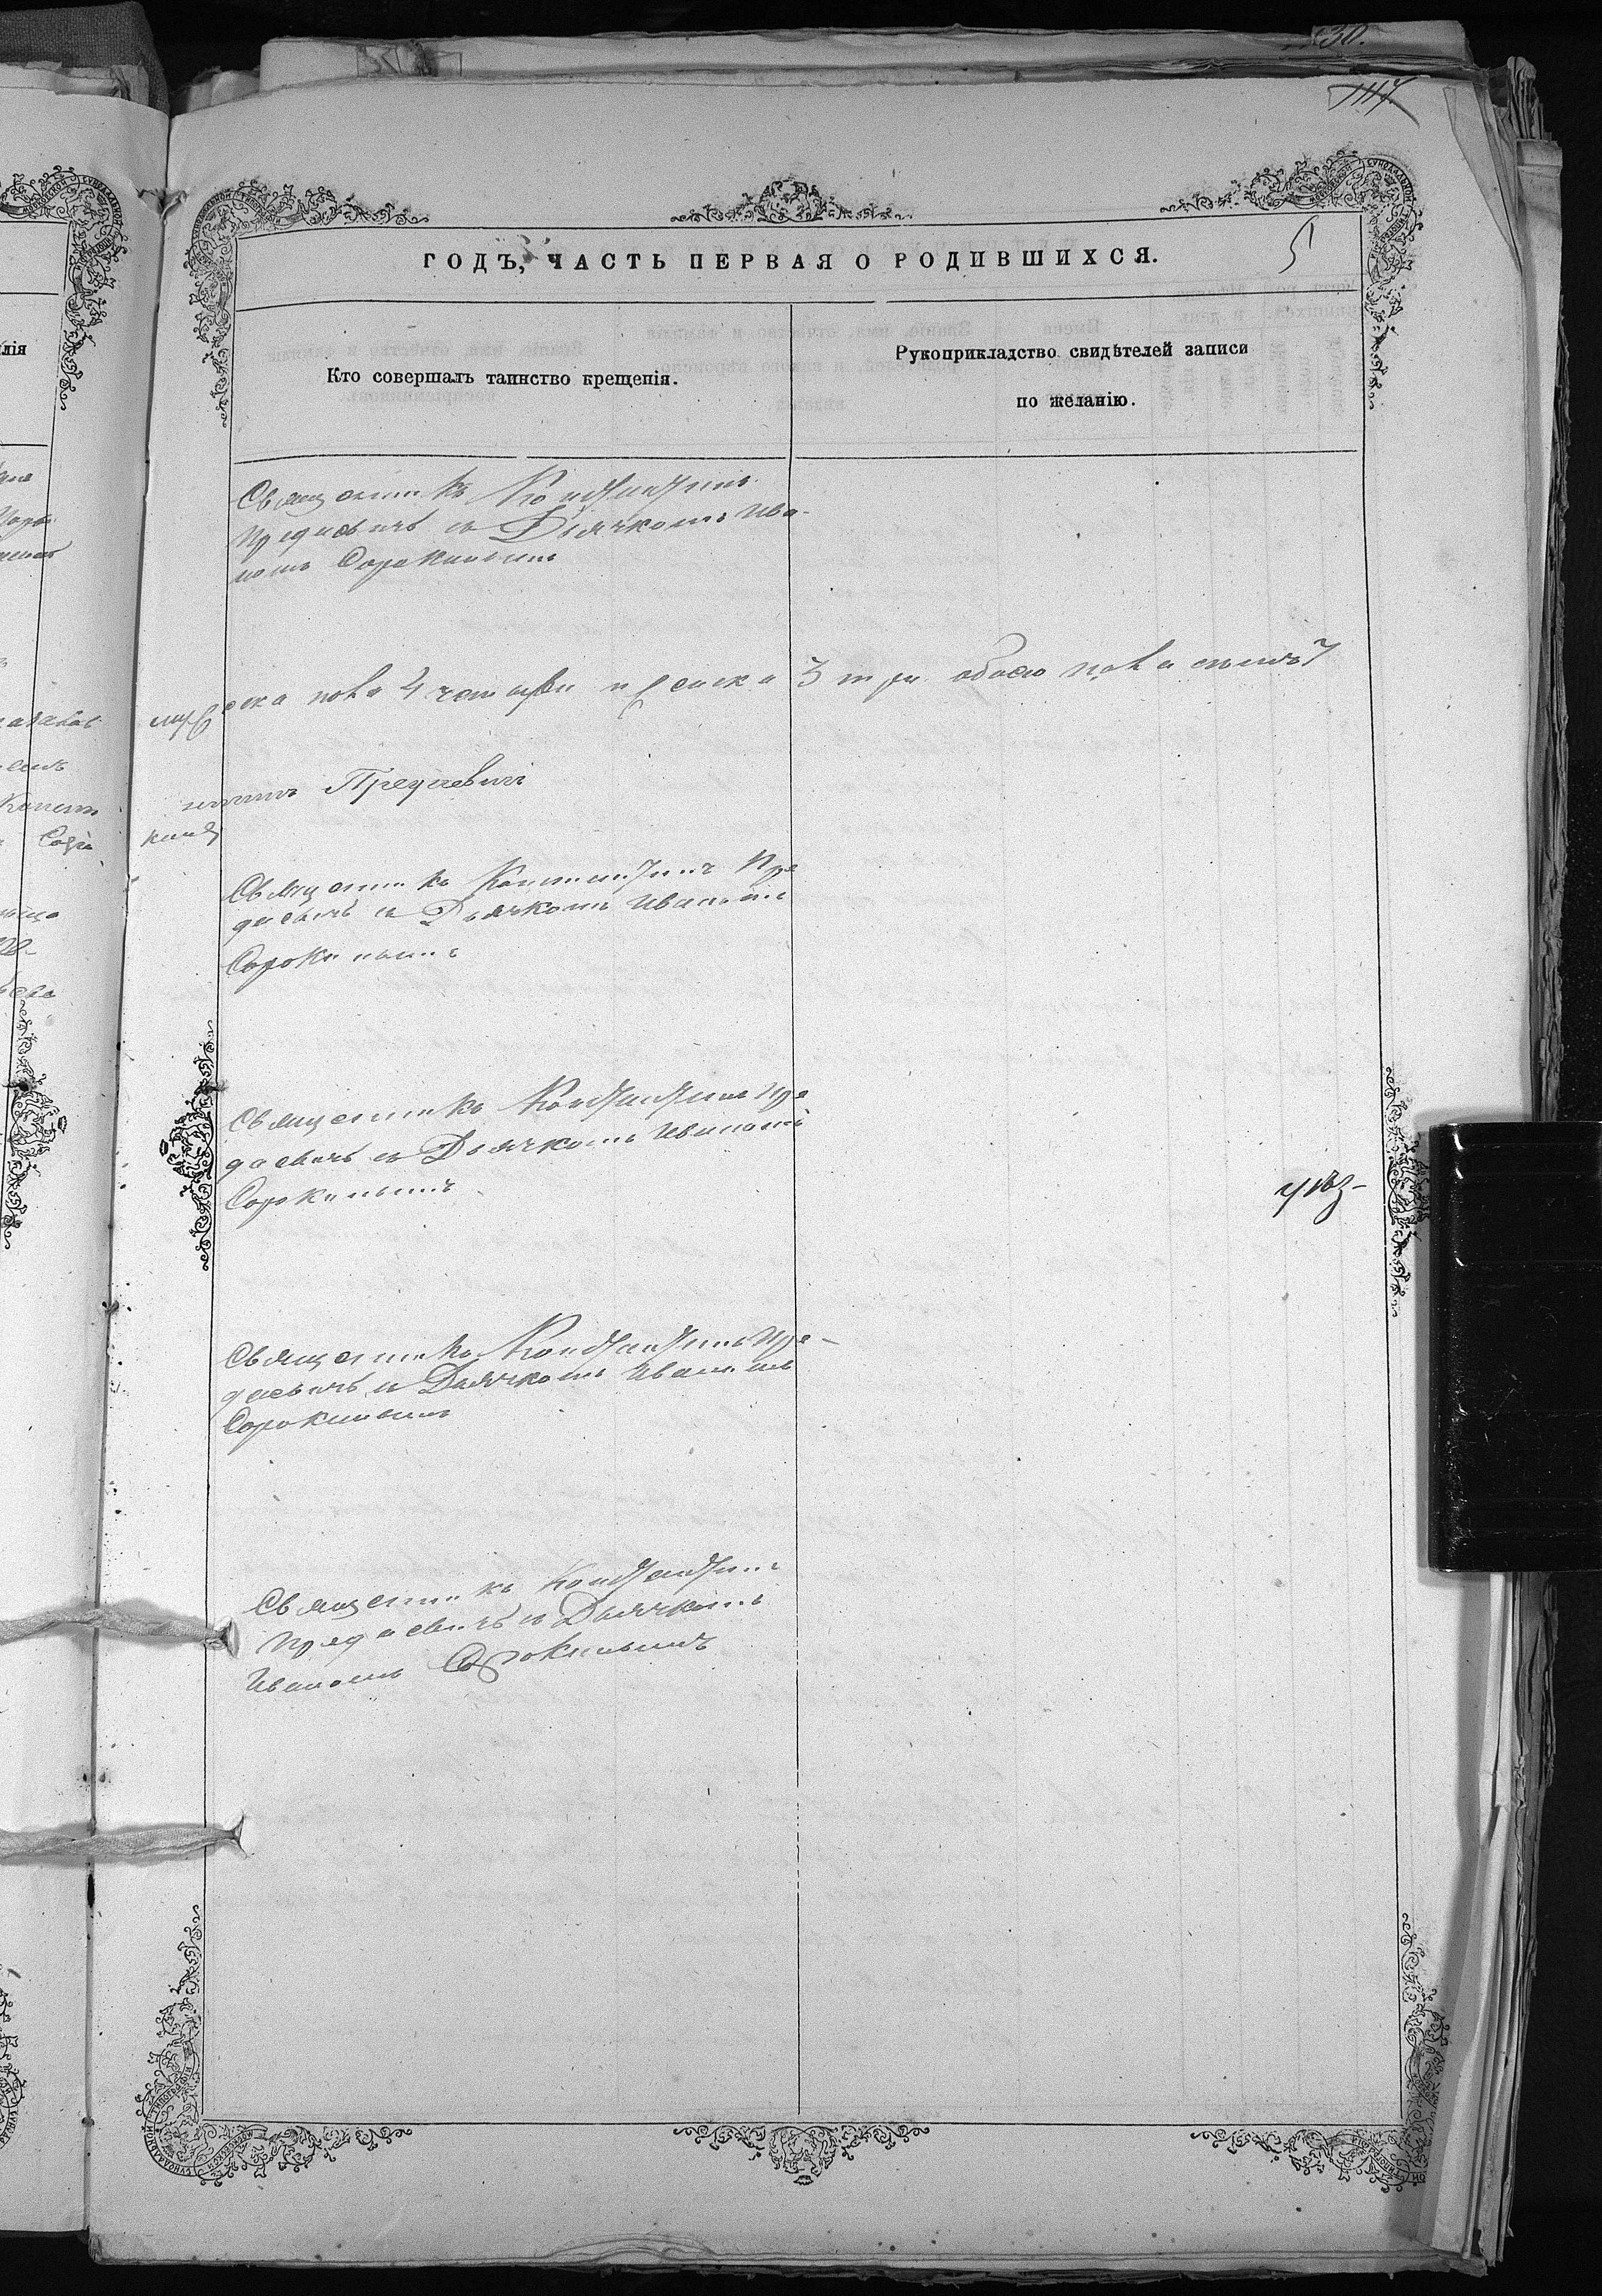 30.
1117
ГОДЪ, ЧАСТЬ ПЕРВАЯ О РОДИВШИХСЯ.
5
Кто совершалъ таинство крещенія.
Рукоприкладство свидѣтелей записи
по желанію.
лія
Священникъ Константинъ
Предаевичъ съ Дьячкомъ Ива-
номъ Сорокинымъ
пола 4 четыри женска 3 три обоего пола
Предаевичъ
Священникъ Константинъ Пре
даевичъ съ Дьячкомъ Иваномъ
Сорокинымъ
Священникъ Константинъ Пре
даевичъ съ Дьячкомъ Иваномъ
Сорокинымъ
Священникъ Константинъ Пре-
даевичъ съ Дьячкомъ Иваномъ
Сорокинымъ
Священникъ Константинъ
Предаевичъ съ Дьячкомъ
Иваномъ Сорокинымъ